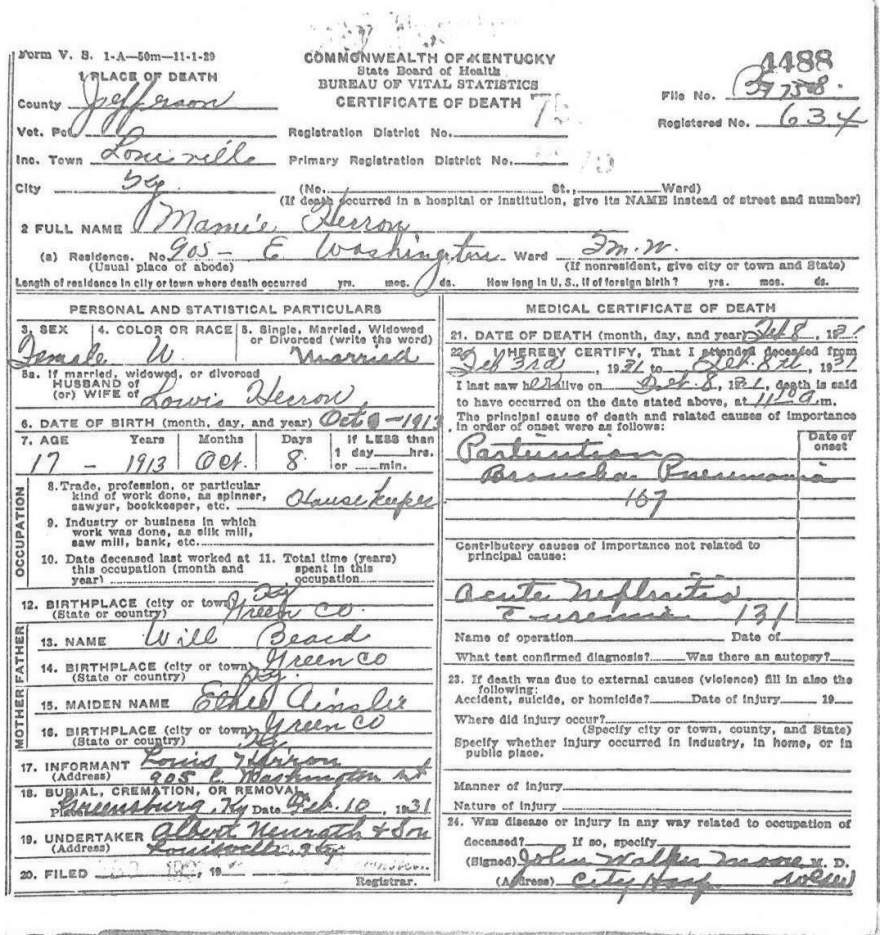 Form V. S. 1-A—50m—11-1-29
COMMONWEALTH OF KENTUCKY
State Board of Health
BUREAU OF VITAL STATISTICS
CERTIFICATE OF DEATH
4488
File No.
Registered No. 634
1 PLACE OF DEATH
County Jefferson
Vot. Pc
Inc. Town Louisville
City Ky
Registration District No.
Primary Registration District No.
(No. St., Ward)
(If death occurred in a hospital or institution, give its NAME instead of street and number)
2 FULL NAME Mamie Herron
(a) Residence. No. 905 - E Washington Ward
(Usual place of abode) (If nonresident, give city or town and State)
Length of residence in city or town where death occurred yrs. mos. ds. How long in U. S., if of foreign birth? yrs. mos. ds.
PERSONAL AND STATISTICAL PARTICULARS
3. SEX 4. COLOR OR RACE 5. Single, Married, Widowed
or Divorced (write the word)
Female W. Married
5a. If married, widowed, or divorced
HUSBAND of
(or) WIFE of Lowis Herron
6. DATE OF BIRTH (month, day, and year) Oct 8 - 1913
7. AGE Years Months Days If LESS than
1 day hrs.
or min.
17 - 1913 Oct. 8
OCCUPATION
8. Trade, profession, or particular
kind of work done, as spinner,
sawyer, bookkeeper, etc. House Keeper
9. Industry or business in which
work was done, as silk mill,
saw mill, bank, etc.
10. Date deceased last worked at
this occupation (month and
year)
11. Total time (years)
spent in this
occupation
12. BIRTHPLACE (city or town) Ky
(State or country) Green Co.
FATHER
13. NAME Will Beard
14. BIRTHPLACE (city or town) Green Co
(State or country) Ky.
MOTHER
15. MAIDEN NAME Ethel Ainslie
16. BIRTHPLACE (city or town) Green Co
(State or country) Ky
17. INFORMANT Louis Herron
(Address) 905 E. Washington st
18. BURIAL, CREMATION, OR REMOVAL
Place Greensburg, Ky Date Feb. 10, 1931
19. UNDERTAKER Albert Neurath & Son
(Address) Louisville, Ky
20. FILED , 19
Registrar.
MEDICAL CERTIFICATE OF DEATH
21. DATE OF DEATH (month, day, and year) Feb 8, 1931
22. I HEREBY CERTIFY, That I attended deceased from
Feb 3rd, 1931 to Feb. 8th, 1931
I last saw her alive on Feb. 8, 1931, death is said
to have occurred on the date stated above, at 11 10 a.m.
The principal cause of death and related causes of importance
in order of onset were as follows:
Date of
onset
Parturition
Broncho Pneumonia
167
Contributory causes of importance not related to
principal cause:
Acute Nephritis
Euremia 131
Name of operation Date of
What test confirmed diagnosis? Was there an autopsy?
23. If death was due to external causes (violence) fill in also the
following:
Accident, suicide, or homicide? Date of injury 19
Where did injury occur?
(Specify city or town, county, and State)
Specify whether injury occurred in industry, in home, or in
public place.
Manner of injury
Nature of injury
24. Was disease or injury in any way related to occupation of
deceased? If so, specify
(Signed) John Walker Moore M. D.
(Address) City Hosp